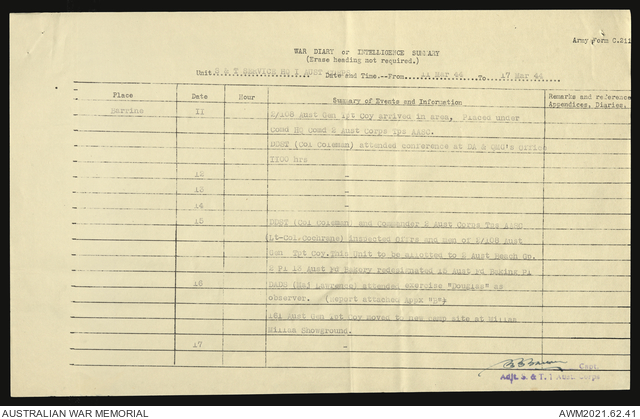 Army Form C.211
WAR DIARY or INTELLIGENCE SUMMARY
(Erase heading not required.)
Unit S & T SERVICE HQ I AUST Date and Time.--From 11 Mar 44 To 17 Mar 44
Place Date Hour Summary of Events and Information Remarks and reference Appendices, Diaries,
Barrine 11 2/108 Aust Gen Tpt Coy arrived in area, Placed under
Comd HQ Comd 2 Aust Corps Tps AASC.
DDST (Col Coleman) attended conference at DA & QMG's office
1100 hrs
12 -
13 -
14 -
15 DDST (Col Coleman) and Commander 2 Aust Corps Tps AASC
(Lt-Col Cochrane) inspected offrs and men of 2/108 Aust
Gen Tpt Coy. This Unit to be allotted to 2 Aust Beach Gp.
2 Pl 18 Aust Fd Bakery redesignated 16 Aust Fd Baking Pl
16 DADS (Maj Lawrence) attended exercise "Douglas" as
observer. (Report attached Appx "B")
181 Aust Gen Tpt Coy moved to new camp site at Millaa
Millaa Showground.
17 -
Capt.
Adjt. S. & T. I Aust. Corps
AUSTRALIAN WAR MEMORIAL
AWM2021.62.41